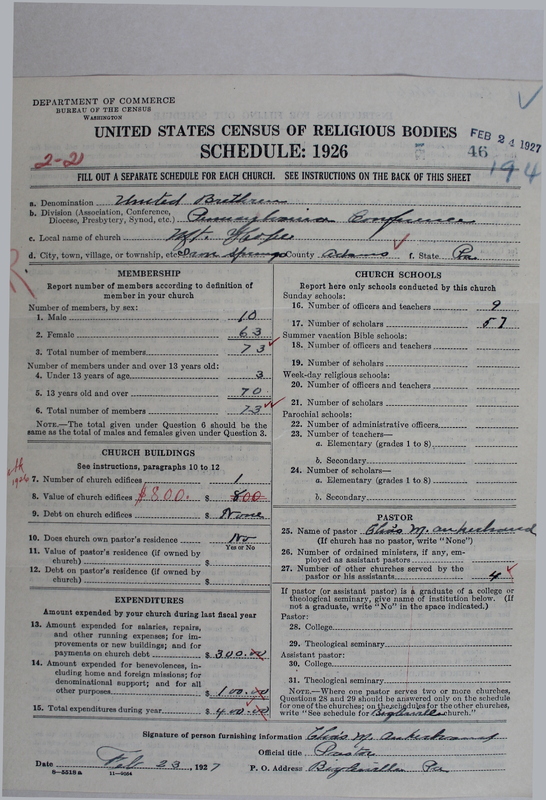 DEPARTMENT OF COMMERCE
BUREAU OF THE CENSUS
WASHINGTON
UNITED STATES CENSUS OF RELIGIOUS BODIES
FEB 24 1927
SCHEDULE: 1926
46
2-21
194
FILL OUT A SEPARATE SCHEDULE FOR EACH CHURCH. SEE INSTRUCTIONS ON THE BACK OF THIS SHEET
a. Denomination United Brethren
b. Division (Association, Conference, Diocese, Presbytery, Synod, etc.) Pennsylvania Conference
c. Local name of church Mt. Hope
d. City, town, village, or township, etc. Springs County Adams f. State Pa
MEMBERSHIP
Report number of members according to definition of member in your church
Number of members, by sex:
1. Male 10
2. Female 63
3. Total number of members 73
Number of members under and over 13 years old:
4. Under 13 years of age 3
5. 13 years old and over 70
6. Total number of members 73
NOTE.—The total given under Question 6 should be the same as the total of males and females given under Question 3.
CHURCH BUILDINGS
See instructions, paragraphs 10 to 12
1926
7. Number of church edifices 1
8. Value of church edifices $800. $ 800
9. Debt on church edifices $ None
10. Does church own pastor's residence No
Yes or No
11. Value of pastor's residence (if owned by church) $
12. Debt on pastor's residence (if owned by church) $
EXPENDITURES
Amount expended by your church during last fiscal year
13. Amount expended for salaries, repairs, and other running expenses; for improvements or new buildings; and for payments on church debt $ 300.00
14. Amount expended for benevolences, including home and foreign missions; for denominational support; and for all other purposes $ 100.00
15. Total expenditures during year $ 400.00
CHURCH SCHOOLS
Report here only schools conducted by this church
Sunday schools:
16. Number of officers and teachers 9
17. Number of scholars 57
Summer vacation Bible schools:
18. Number of officers and teachers
19. Number of scholars
Week-day religious schools:
20. Number of officers and teachers
21. Number of scholars
Parochial schools:
22. Number of administrative officers
23. Number of teachers—
a. Elementary (grades 1 to 8)
b. Secondary
24. Number of scholars—
a. Elementary (grades 1 to 8)
b. Secondary
PASTOR
25. Name of pastor M.
(If church has no pastor, write "None")
26. Number of ordained ministers, if any, employed as assistant pastors
27. Number of other churches served by the pastor or his assistants 4
If pastor (or assistant pastor) is a graduate of a college or theological seminary, give name of institution below. (If not a graduate, write "No" in the space indicated.)
Pastor:
28. College
29. Theological seminary
Assistant pastor:
30. College
31. Theological seminary
NOTE.—Where one pastor serves two or more churches, Questions 28 and 29 should be answered only on the schedule for one of the churches; on the schedules for the other churches, write "See schedule for Biglerville church."
Signature of person furnishing information M.
Official title Pastor
Date Feb 23, 1927 P. O. Address Pa
8-5518a 11-9554